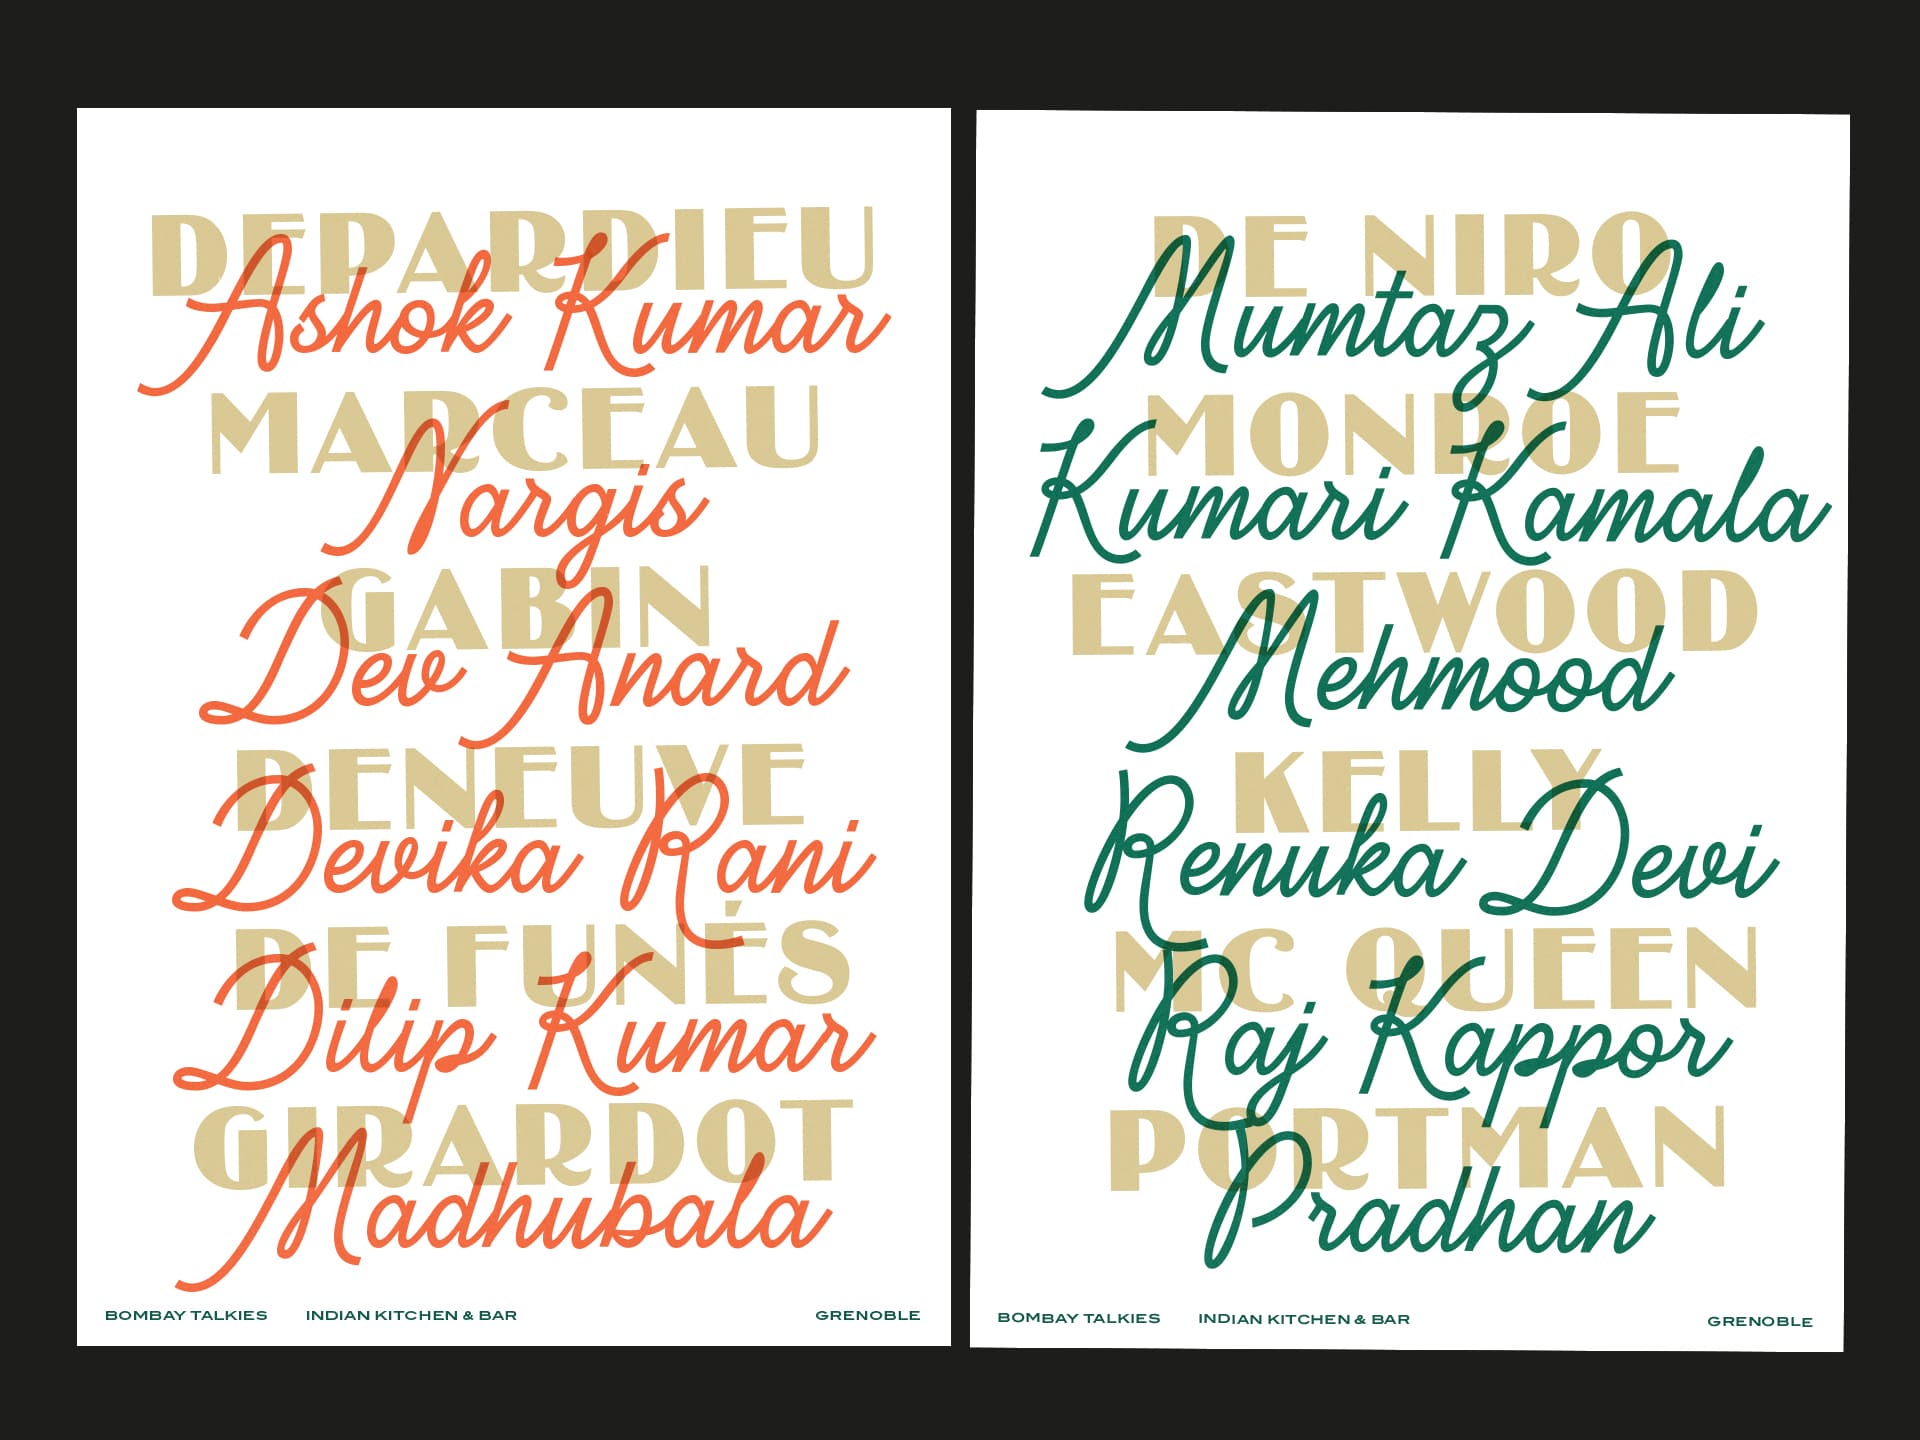 DEPARDIEU
Ashok Kumar
MARCEAU
Nargis
GABIN
Dev Anard
DENEUVE
Devika Rani
DE FUNÉS
Dilip Kumar
GIRARDOT
Madhubala
BOMBAY TALKIES INDIAN KITCHEN & BAR GRENOBLE
DE NIRO
Mumtaz Ali
MONROE
Kumari Kamala
EASTWOOD
Mehmood
KELLY
Renuka Devi
MC QUEEN
Raj Kappor
PORTMAN
Pradhan
BOMBAY TALKIES INDIAN KITCHEN & BAR GRENOBLE